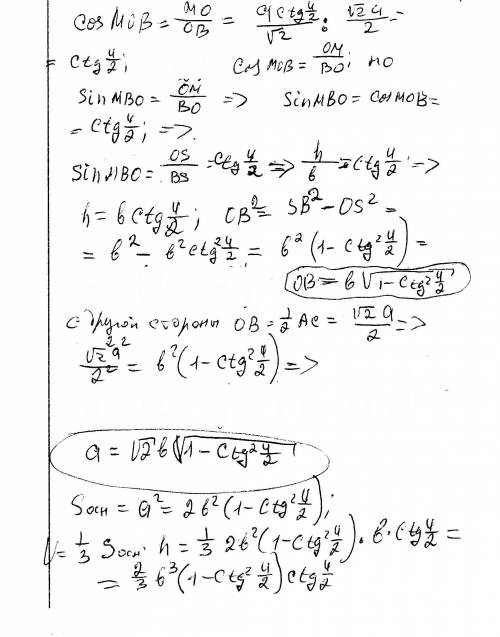 cos MOB = MO/OB = a ctg φ/2 / √2 : √2 a / 2 =
= ctg φ/2; cos MOB = OM/BO; но
Sin MBO = OM/BO => Sin MBO = cos MOB =
= ctg φ/2; =>
Sin MBO = OS/BS = ctg φ/2 => h/b = ctg φ/2 =>
h = b ctg φ/2; OB² = SB² - OS² =
= b² - b² ctg² φ/2 = b² (1 - ctg² φ/2) =
OB = b √(1 - ctg² φ/2)
с другой стороны OB = 1/2 AC = √2 a / 2 =>
√2² a² / 2² = b² (1 - ctg² φ/2) =>
a = √2 b √(1 - ctg² φ/2)
Sосн = a² = 2b² (1 - ctg² φ/2);
V = 1/3 Sосн · h = 1/3 2b² (1 - ctg² φ/2) · b · ctg φ/2 =
= 2/3 b³ (1 - ctg² φ/2) ctg φ/2